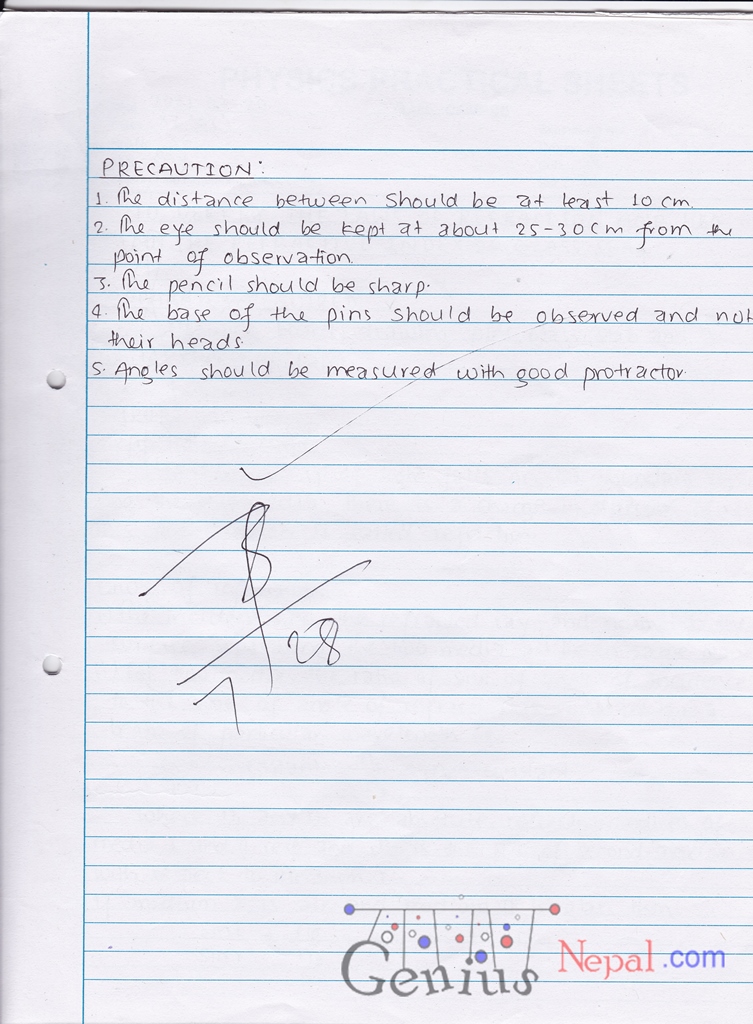 PRECAUTION:
1. The distance between should be at least 10 cm.
2. The eye should be kept at about 25-30 cm from the
point of observation.
3. The pencil should be sharp.
4. The base of the pins should be observed and not
their heads.
5. Angles should be measured with good protractor.
28
7
Genius Nepal.com